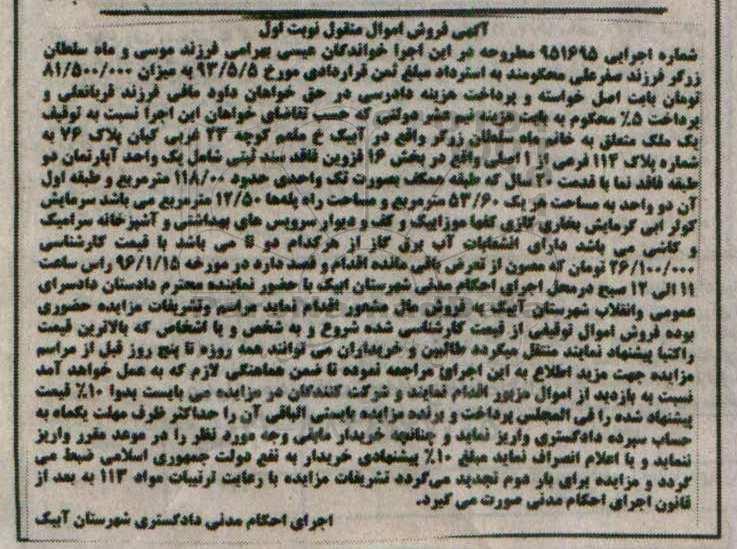 آگهی فروش اموال منقول نوبت اول
شماره اجرایی ۹۵۱۶۹۵ مطروحه در این اجرا خواندگان عیسی بهرامی فرزند موسی و ماه سلطان
زرگر فرزند سفرعلی محکومند به استرداد مبلغ ثمن قراردادی مورخ ۹۳/۵/۵ به میزان ۸۱/۵۰۰/۰۰۰
تومان بابت اصل خواسته و پرداخت هزینه دادرسی در حق خواهان داوه مافی فرزند قربانعلی و
پرداخت ۵٪ محکوم به بابت هزینه نیم عشر دولتی که حسب تقاضای خواهان این اجرا نسبت به توقیف
یک ملک متعلق به خانم ماه سلطان زرگر واقع در آبیک خ ملعم کوچه ۲۳ غربی کیان پلاک ۷۶ به
شماره پلاک ۱۱۴ فرعی از ۱ اصلی واقع در بخش ۱۶ قزوین فاقد سند ثبتی شامل یک واحد آپارتمان دو
طبقه فاقد نما با قدمت ۲۰ سال که طبقه همکف بصورت تک واحدی حدود ۱۱۸/۰۰ مترمربع و طبقه اول
آن دو واحد به مساحت هر یک ۵۳/۶۰ مترمربع و مساحت راه پله‌ها ۱۲/۵۰ مترمربع می باشد سرمایش
کولر آبی گرمایش بخاری گازی کفها موزاییک و کف و دیوار سرویس های بهداشتی و آشپزخانه سرامیک
و کاشی می باشد دارای انشعابات آب برق گاز از هرکدام دو تا می باشد با قیمت کارشناسی
۲۶/۱۰۰/۰۰۰ تومان که مصون از تعرض باقی مانده اقدام و قصد دارد در مورخه ۹۶/۱/۱۵ راس ساعت
۱۱ الی ۱۲ صبح درمحل اجرای احکام مدنی شهرستان آبیک با حضور نماینده محترم دادستان دادسرای
عمومی وانقلاب شهرستان آبیک به فروش مال مشعور اقدام نماید مراسم وتشریفات مزایده حضوری
بوده فروش اموال توقیفی از قیمت کارشناسی شده شروع و به شخص و یا اشخاص که بالاترین قیمت
راکتبا پیشنهاد نمایند منتقل میگردد طالبین و خریداران می توانند همه روزه تا پنج روز قبل از مراسم
مزایده جهت مزید اطلاع به این اجرای مراجعه نموده تا ضمن هماهنگی لازم که به عمل خواهد آمد
نسبت به بازدید از اموال مزبور اقدام نمایند و شرکت کنندگان در مزایده می بایست بدوا ۱۰٪ قیمت
پیشنهاد شده را فی المجلس پرداخت و برنده مزایده بایستی الباقی آن را حداکثر ظرف مهلت یکماه به
حساب سپرده دادگستری واریز نماید و چنانچه خریدار مابقی وجه مورد نظر را در موعد مقرر واریز
ننماید و یا اعلام انصراف نماید مبلغ ۱۰٪ پیشنهادی خریدار به نفع دولت جمهوری اسلامی ضبط می
گردد و مزایده برای بار دوم تجدید می‌گردد تشریفات مزایده با رعایت ترتیبات مواد ۱۱۳ به بعد از
قانون اجرای احکام مدنی صورت می گیرد.
اجرای احکام مدنی دادگستری شهرستان آبیک